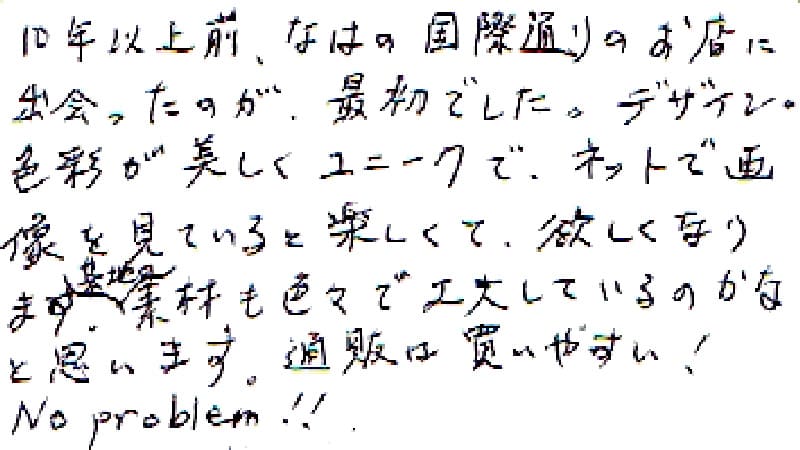 10年以上前、なはの国際通りのお店に
出会ったのが、最初でした。デザイン。
色彩が美しくユニークで、ネットで画
像を見ていると楽しくて、欲しくなり
ます。生地の素材も色々で工夫しているのかな
と思います。通販は買いやすい!
No problem!!